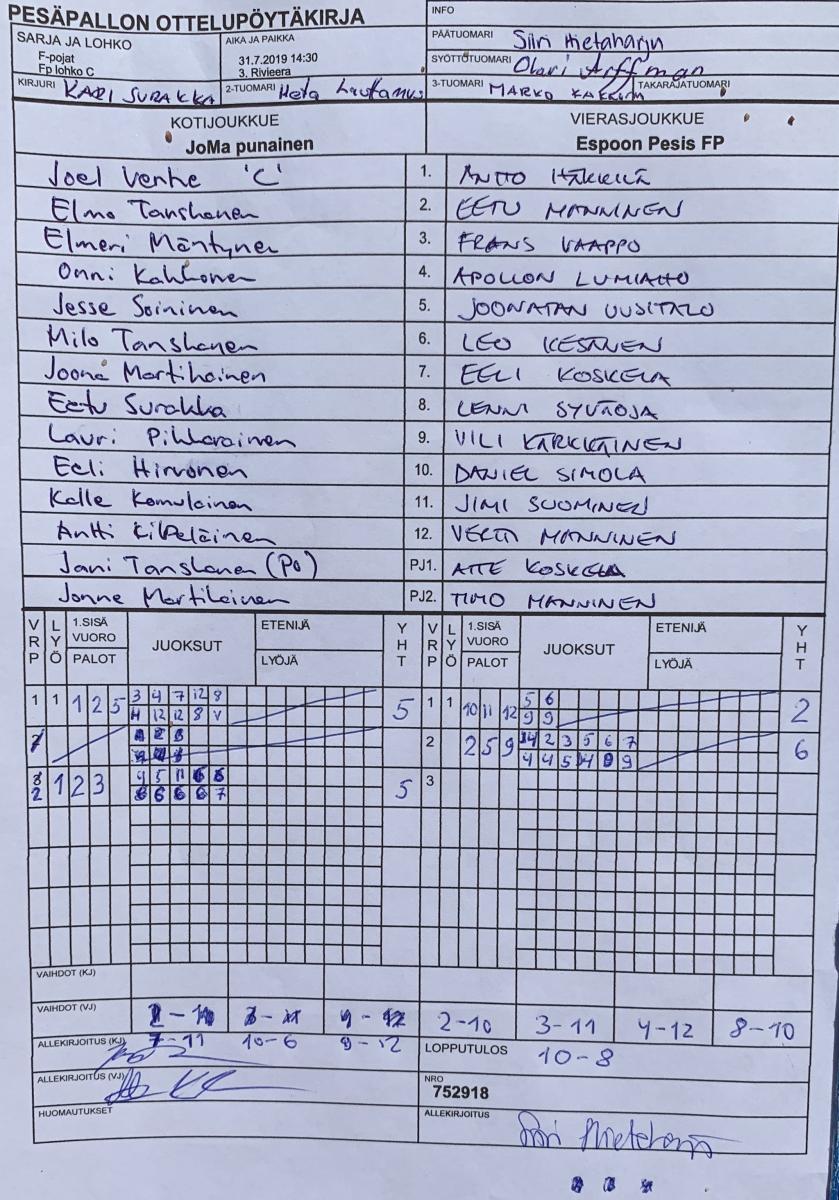 PESÄPALLON OTTELUPÖYTÄKIRJA
INFO
SARJA JA LOHKO
F-pojat
Fp lohko C
AIKA JA PAIKKA
31.7.2019 14:30
3. Rivieera
PÄÄTUOMARI Siiri Hietaharju
SYÖTTÖTUOMARI Olari Arffman
KIRJURI KARI SURAKKA
2-TUOMARI Heta Lautamus
3-TUOMARI MARKO
TAKARAJATUOMARI
KOTIJOUKKUE
JoMa punainen
VIERASJOUKKUE
Espoon Pesis FP
Joel Venhe 'C' 1. ANTTO HÄKKILÄ
Elmo Tanskanen 2. EETU MANNINEN
Elmeri Mäntynen 3. FRANS VAAPPO
Onni Kahkonen 4. APOLLON LUMIAHO
Jesse Soininen 5. JOONATAN UUSITALO
Milo Tanskanen 6. LEO KESÄNEN
Joona Martikainen 7. EELI KOSKELA
Eetu Surakka 8. LENNI SYVÄOJA
Lauri Pikkarainen 9. VILI KÄRKKÄINEN
Eeli Hirvonen 10. DANIEL SIMOLA
Kalle Komulainen 11. JIMI SUOMINEN
Antti Kilpeläinen 12. VERTTI MANNINEN
Jani Tanskanen (PO) PJ1. ATTE KOSKELA
Jonne Martikainen PJ2. TIMO MANNINEN
VRP LYÖ 1.SISÄ VUORO PALOT JUOKSUT ETENIJÄ LYÖJÄ YHT VRP LYÖ 1.SISÄ VUORO PALOT JUOKSUT ETENIJÄ LYÖJÄ YHT
1 1 1 2 5 3 4 7 12 8 5 1 1 10 11 12 5 6 2
12 12 8 V 9 9
2 2 5 9 2 3 5 6 7 6
4 4 5 9
2 1 2 3 5 11 5 3
6 6 6 7
VAIHDOT (KJ)
VAIHDOT (VJ) 2-10 3-11 4-12 8-10
7-11 10-6 9-12
ALLEKIRJOITUS (KJ)
LOPPUTULOS 10-8
ALLEKIRJOITUS (VJ)
NRO
752918
HUOMAUTUKSET
ALLEKIRJOITUS